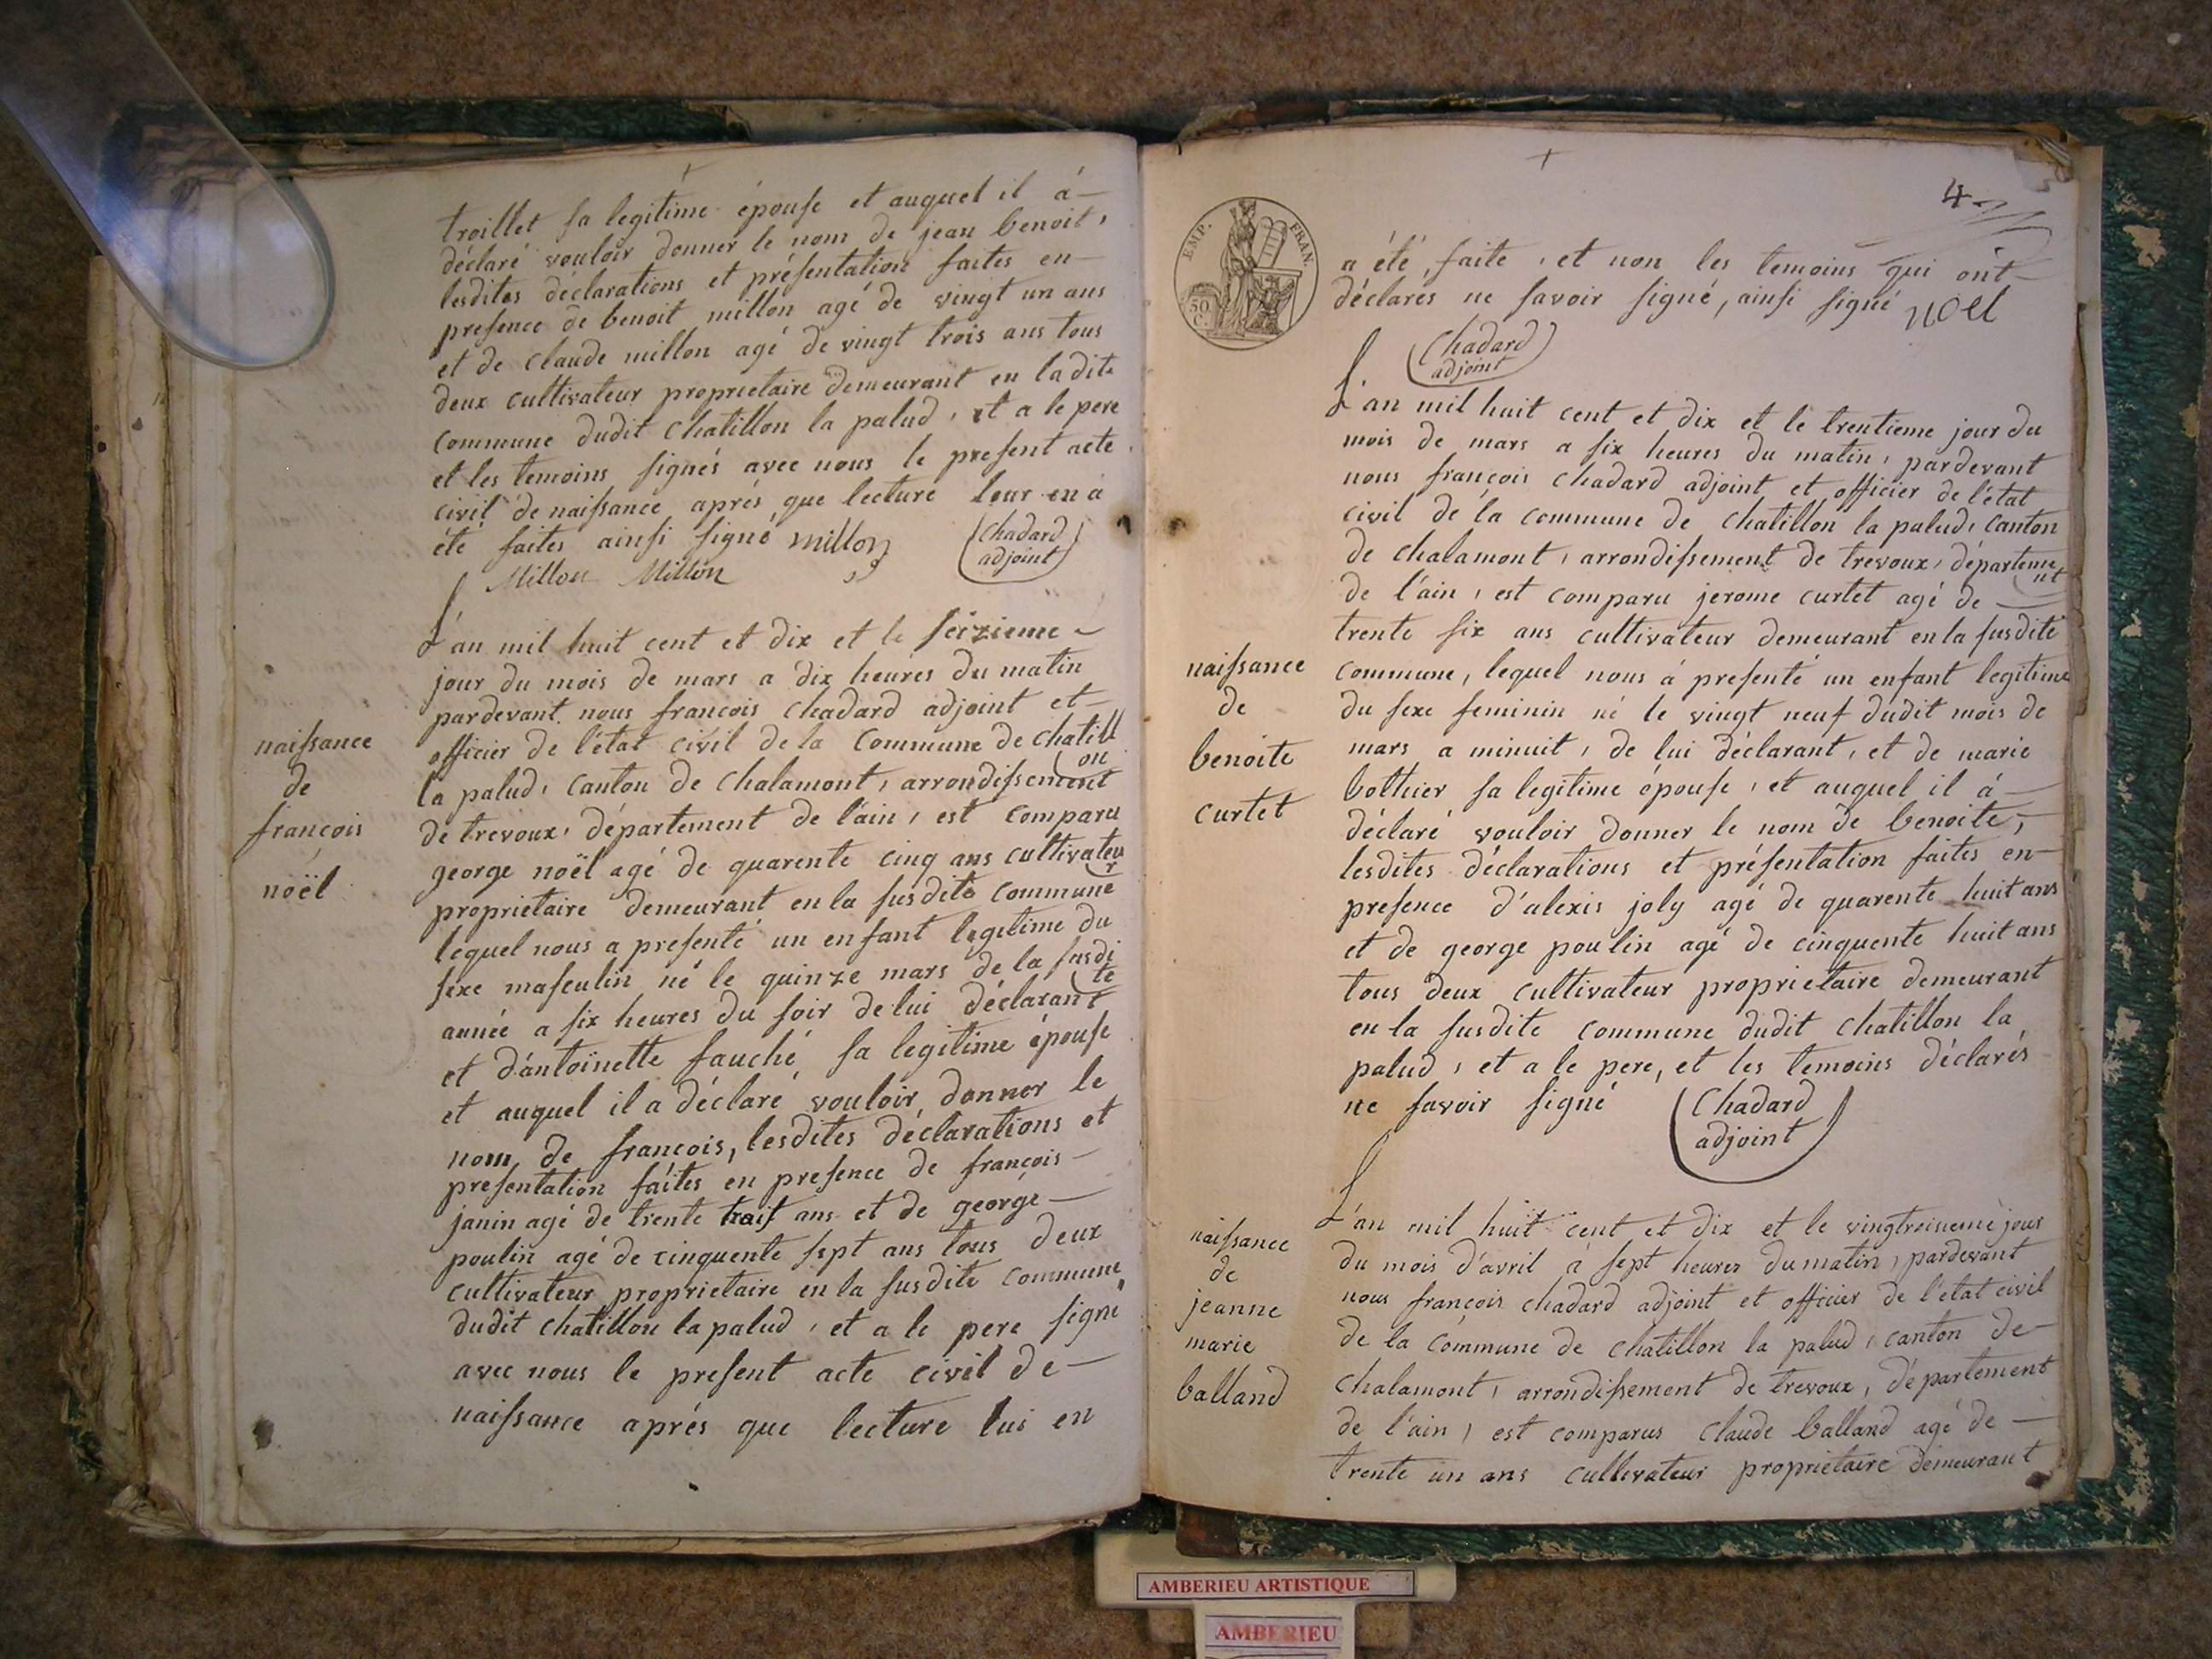 troillet sa legitime épouse et auquel il á
déclaré vouloir donner le nom de jean benoit,
lesdites déclarations et présentation faites en
presence de benoit millon agé de vingt un ans
et de claude millon agé de vingt trois ans tous
deux cultivateur proprietaire demeurant en la dite
commune dudit chatillon la palud, et a le pere
et les temoins signés avec nous le present acte
civil de naissance aprés que lecture leur en á
été faites ainsi signé millon
Chadard
adjoint
Millon Millon
L'an mil huit cent et dix et le seizieme
jour du mois de mars a dix heures du matin
pardevant nous francois chadard adjoint et
officier de l'état civil de la commune de chatill
on
la palud, canton de chalamont, arrondissement
de trevoux, département de l'ain, est comparu
george noël agé de quarente cinq ans cultivateu
r
proprietaire demeurant en la susdite commune
lequel nous a presenté un enfant legitime du
sexe masculin né le quinze mars de la susdi
te
année a six heures du soir de lui déclarant
et d'antoinette fauché sa legitime épouse
et auquel il a déclaré vouloir donner le
nom de francois, lesdites déclarations et
presentation faites en presence de françois
janin agé de trente trois ans et de george
poulin agé de cinquente sept ans tous deux
cultivateur proprietaire en la susdite commune
dudit chatillon la palud, et a le pere signé
avec nous le present acte civil de
naissance aprés que lecture lui en
naissance
de
françois
noël
4
EMP. FRAN.
50
C.
a été, faite, et non les temoins qui ont
déclarés ne savoir signé, ainsi signé noel
Chadard
adjoint
L'an mil huit cent et dix et le trentieme jour du
mois de mars a six heures du matin, pardevant
nous françois chadard adjoint et officier de l'état
civil de la commune de chatillon la palud, canton
de chalamont, arrondissement de trevoux, départeme
nt
de l'ain, est comparu jerome curtet agé de
trente six ans cultivateur demeurant en la susdite
commune, lequel nous á presenté un enfant legitime
du sexe feminin né le vingt neuf dudit mois de
mars a minuit, de lui déclarant, et de marie
bothier sa legitime épouse, et auquel il á
déclaré vouloir donner le nom de benoite,
lesdites déclarations et présentation faites en
presence d'alexis joly agé de quarente huit ans
et de george poulin agé de cinquente huit ans
tous deux cultivateur proprietaire demeurant
en la susdite commune dudit chatillon la
palud, et a le pere, et les temoins déclarés
ne savoir signé
Chadard
adjoint
naissance
de
benoite
curtet
L'an mil huit cent et dix et le vingtroisieme jour
du mois d'avril à sept heures du matin, pardevant
nous françois chadard adjoint et officier de l'état civil
de la commune de chatillon la palud, canton de
chalamont, arrondissement de trevoux, département
de l'ain, est comparus claude balland agé de
trente un ans cultivateur proprietaire demeurant
naissance
de
jeanne
marie
balland
AMBERIEU ARTISTIQUE
AMBERIEU